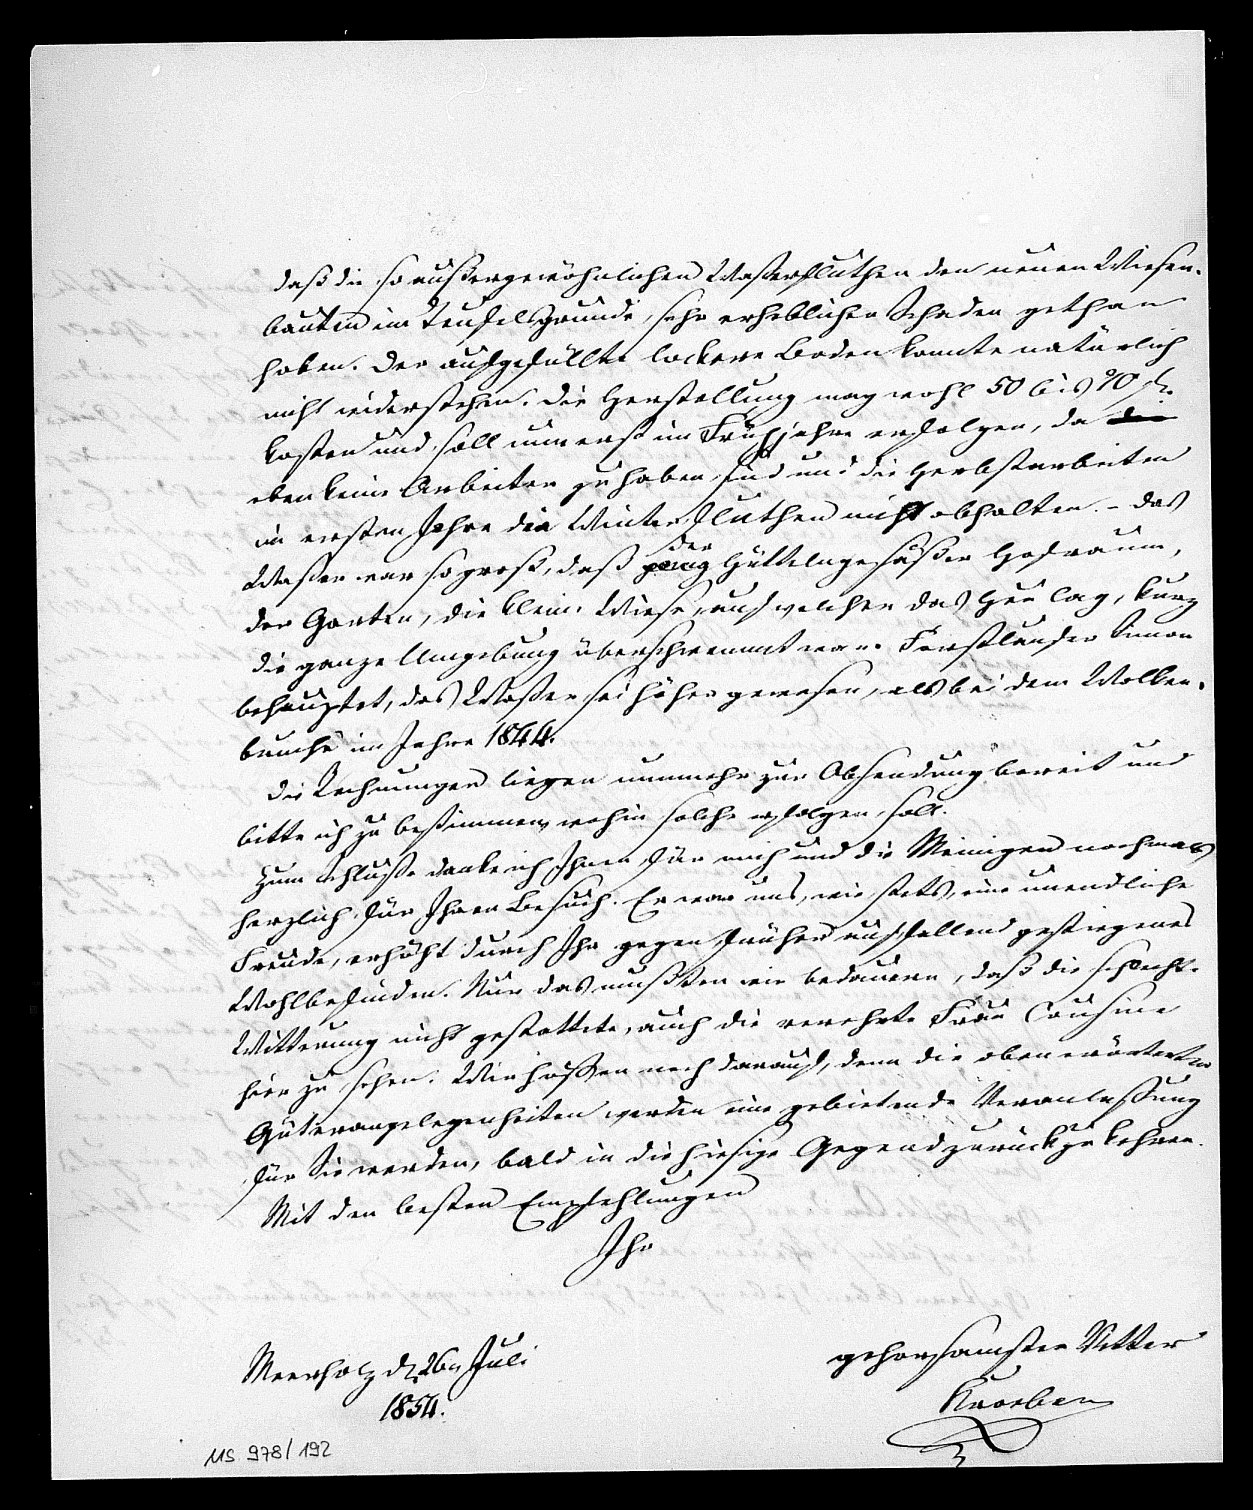 daß die so außergewöhnlichen Wasserfluthen den neuen Wiesen-
bauten im Teufelsgrunde, sehr erheblichen Schaden gethan
haben. Der aufgefüllte lockere Boden konnte natürlich
nicht widerstehen. Die Herstellung mag wohl 50 bis 70 fl.
kosten und soll nun erst im Frühjahre erfolgen, da die
eben keine Arbeiter zu haben sind und die Herbstarbeiten
im ersten Jahre die Winterfluthen nicht abhalten. – Das
der
Wasser war so groß, daß ganz Hüttelngesäßer Hofraum,
der Garten, die kleine Wiese, auf welcher das Heu lag, kurz
die ganze Umgebung überschwemmt war. Forstläufer Simon
behauptet, das Wasser sei höher gewesen, als bei dem Wolken-
bruche im Jahre 1844.
Die Rechnungen liegen nunmehr zur Absendung bereit und
bitte ich zu bestimmen, wohin solche erfolgen soll.
Zum Schluße danke ich Ihnen für mich und die Meinigen nochmals
herzlich für Ihren Besuch. Er war uns, wie stets, eine unendliche
Freude, erhöht durch Ihr gegen früher auffallend gestiegenes
Wohlbefinden. Nur das mußten wir bedauern, daß die schlechte
Witterung nicht gestattete, auch die verehrte Frau Cousine
hier zu sehen. Wir hoffen noch darauf, denn die oben erörterten
Güterangelegenheiten werden eine gebietende Veranlassung
für Sie werden, bald in die hiesige Gegend zurückzukehren.
Mit den besten Empfehlungen
Ihr
gehorsamster Vetter
Meerholz d. 26n Juli
1854.
MS 978/192